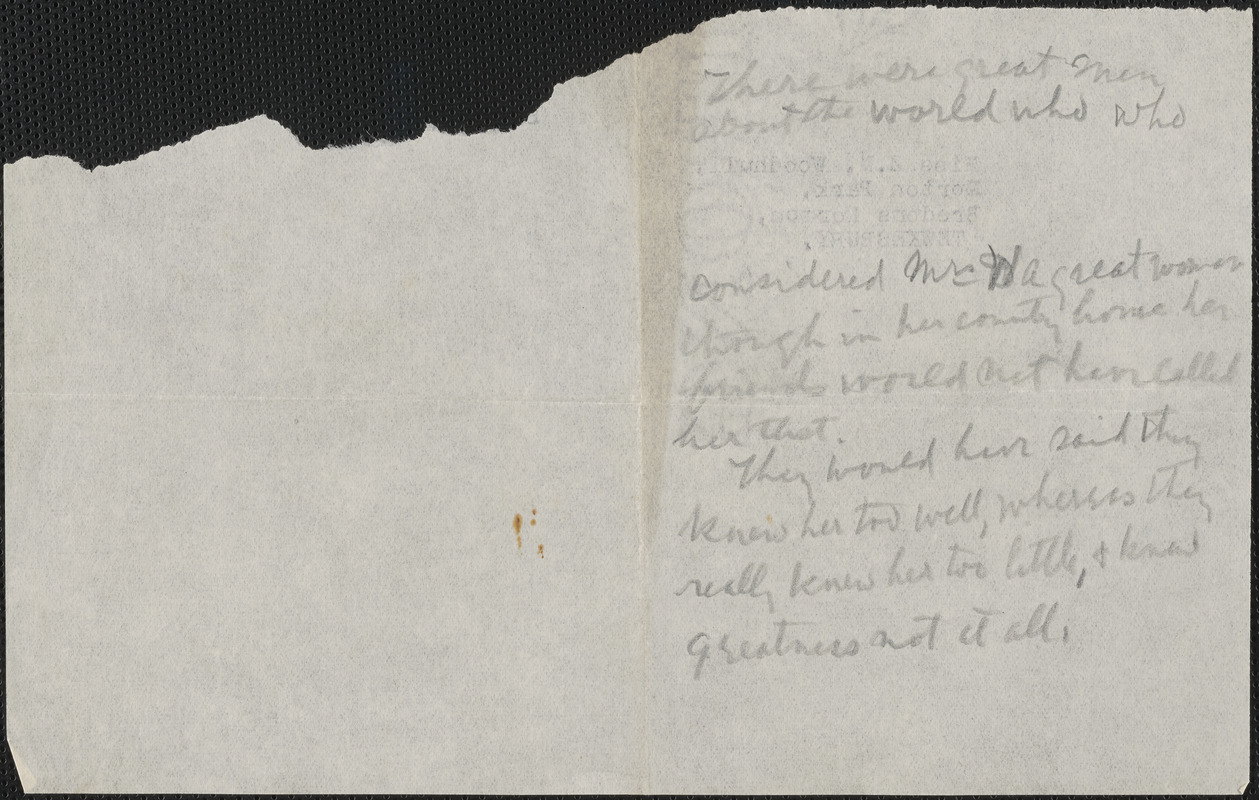 There were great men
about the world who who
Miss Z.M. Woodhull,
Norton Park,
Bredons Norton,
TEWKESBURY.
considered Mrs W a great woman
though in her country home her
friends would not have called
her that.
They would have said they
knew her too well, whereas they
really knew her too little, & knew
greatness not at all.